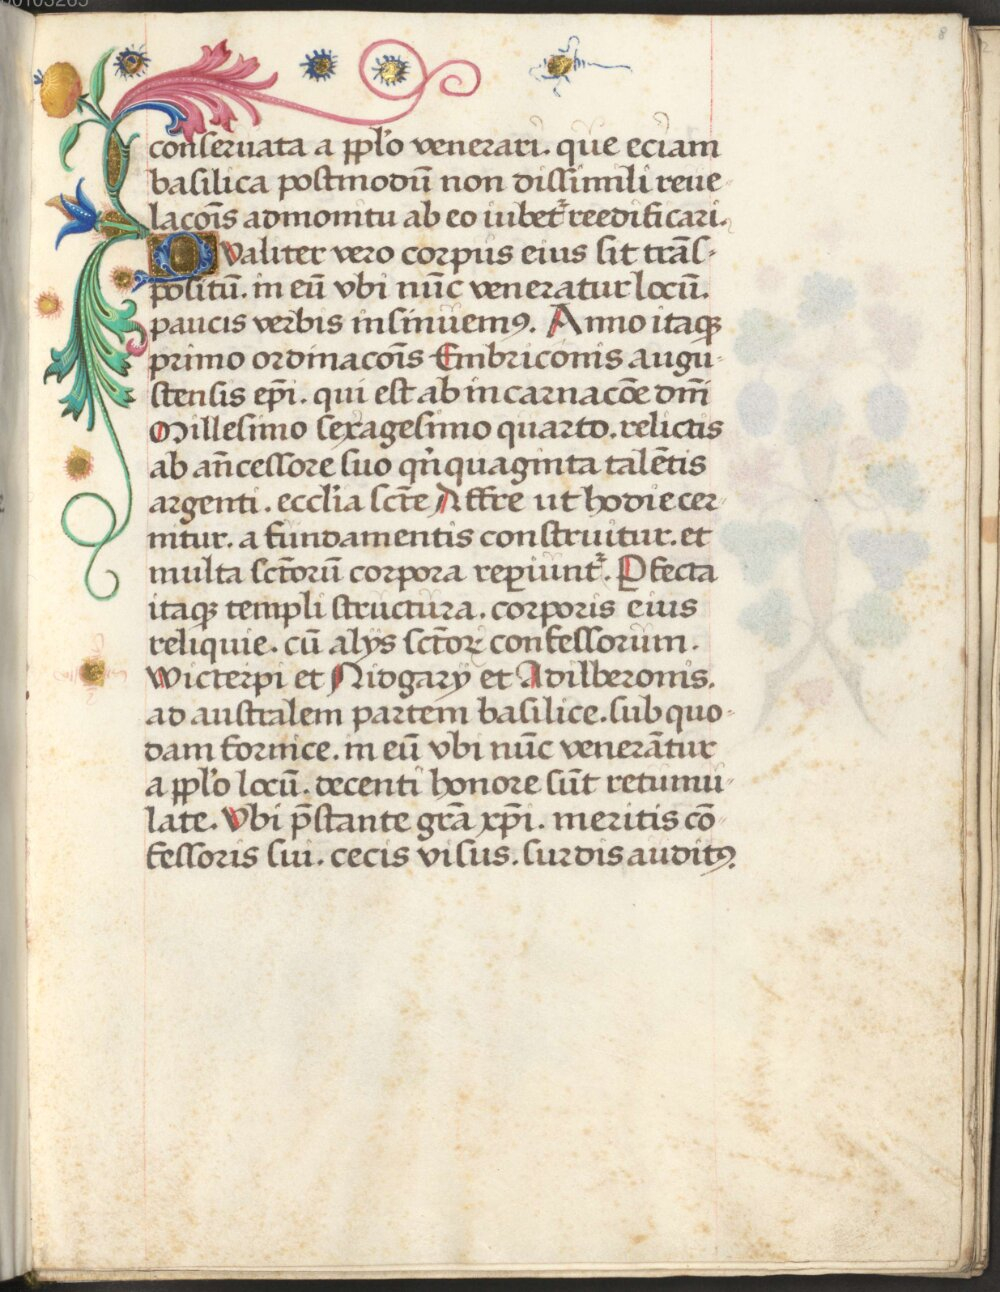 00103265
8
conseruata a pp̄lo venerari. que eciam
basilica postmodū non dissimili reue-
lacōis admonitu ab eo iubet᷑ reedificari.
Qvaliter vero corpus eius sit trāſ-
positū. in eū vbi nūc veneratur locū.
paucis verbis insinuemꝰ. Anno itaqꝫ
primo ordinacōis Embriconis augu-
stensis ep̄i. qui est ab incarnacōe dn̄i
Millesimo sexagesimo quarto. relictis
ab an̄cessore suo qn̄quaginta talētis
argenti. eccl̄ia sct̄e Affre ut hodie cer-
nitur. a fundamentis construitur. et
multa sct̄orū corpora repiunt᷑. Pfecta
itaqꝫ templi structura. corporis eius
reliquie. cū alijs sct̄oꝝ confessorum.
Wicterpi et Nidgarij et Adilberonis.
ad australem partem basilice. sub quo-
dam fornice. in eū vbi nūc venerātur
a pp̄lo locū. decenti honore sūt retumu-
late. Vbi p̄stante gr̄a xp̄i. meritis cō-
fessoris sui. cecis visus. surdis auditꝰ.